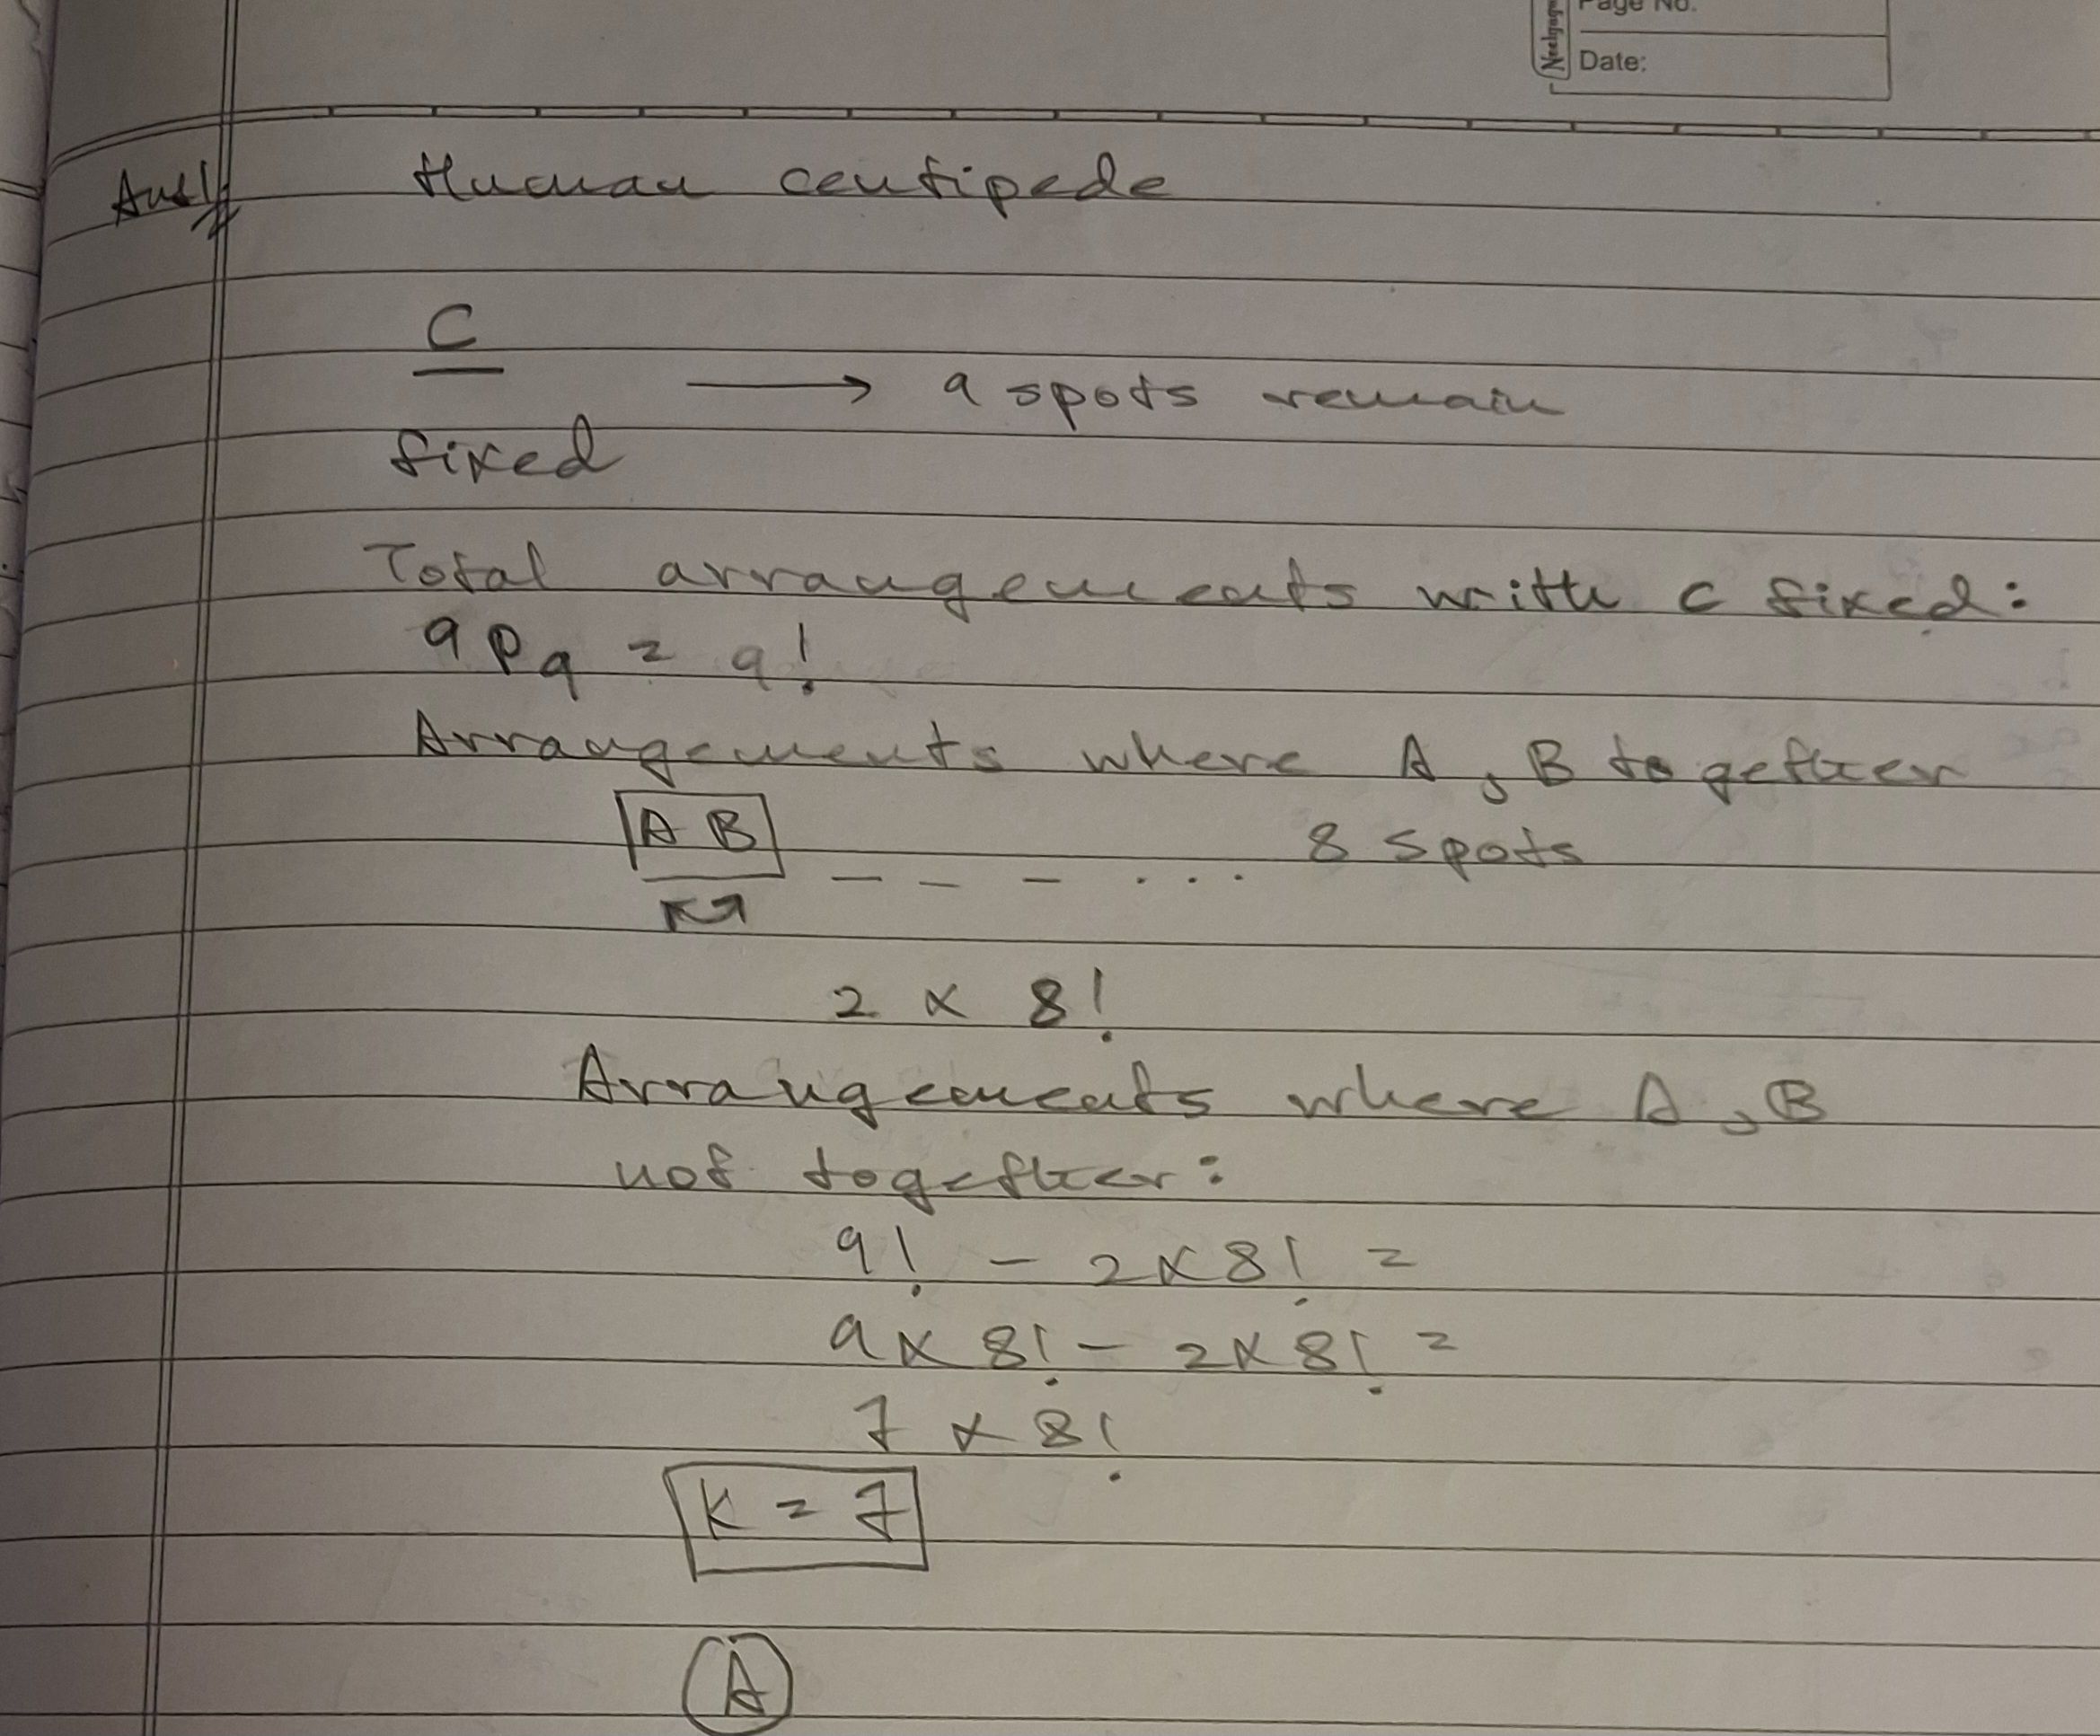 Neelgagan
Page No.
Date:
Ans1
Human centipede
C
fixed → 9 spots remain
Total arrangements with C fixed:
9P9 = 9!
Arrangements where A, B together
A B _ _ _ ... 8 spots
2 × 8!
Arrangements where A, B
not together:
9! - 2×8! =
9×8! - 2×8! =
7 × 8!
K = 7
A